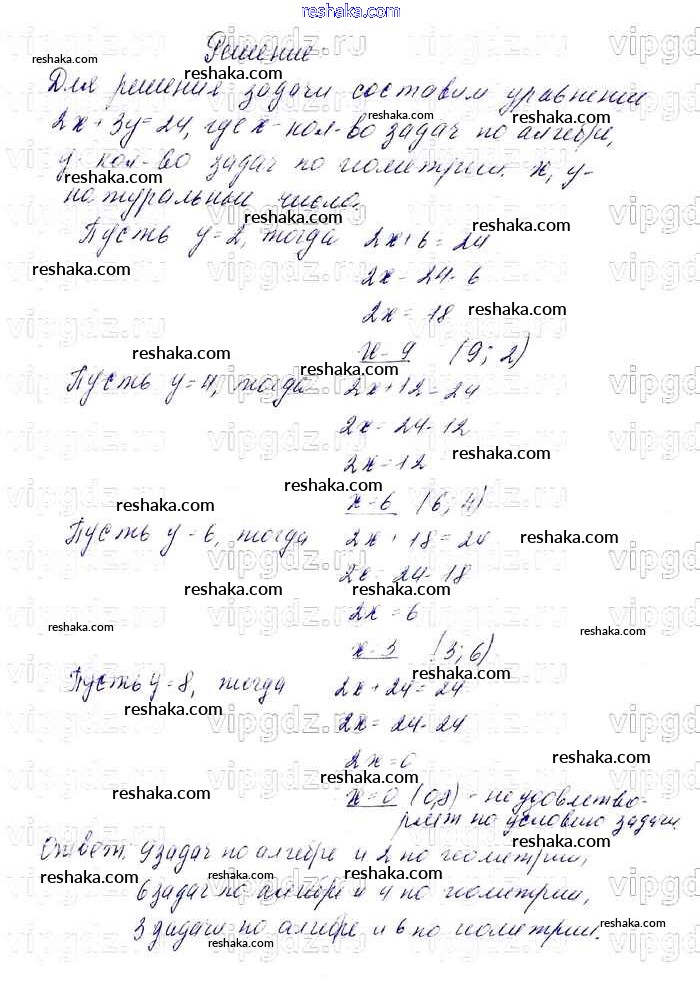 reshaka.com
Решение
Для решения задачи составим уравнение
2x + 3y = 24, где x - кол-во задач по алгебре,
y - кол-во задач по геометрии. x, y -
натуральные числа.
Пусть y = 2, тогда 2x + 6 = 24
2x = 24 - 6
2x = 18
x = 9 (9; 2)
Пусть y = 4, тогда 2x + 12 = 24
2x = 24 - 12
2x = 12
x = 6 (6; 4)
Пусть y = 6, тогда 2x + 18 = 24
2x = 24 - 18
2x = 6
x = 3 (3; 6)
Пусть y = 8, тогда 2x + 24 = 24
2x = 24 - 24
2x = 0
x = 0 (0,8) - не удовлетво-
ряет по условию задачи.
Ответ: 9 задач по алгебре и 2 по геометрии,
6 задач по алгебре и 4 по геометрии,
3 задачи по алгебре и 6 по геометрии.